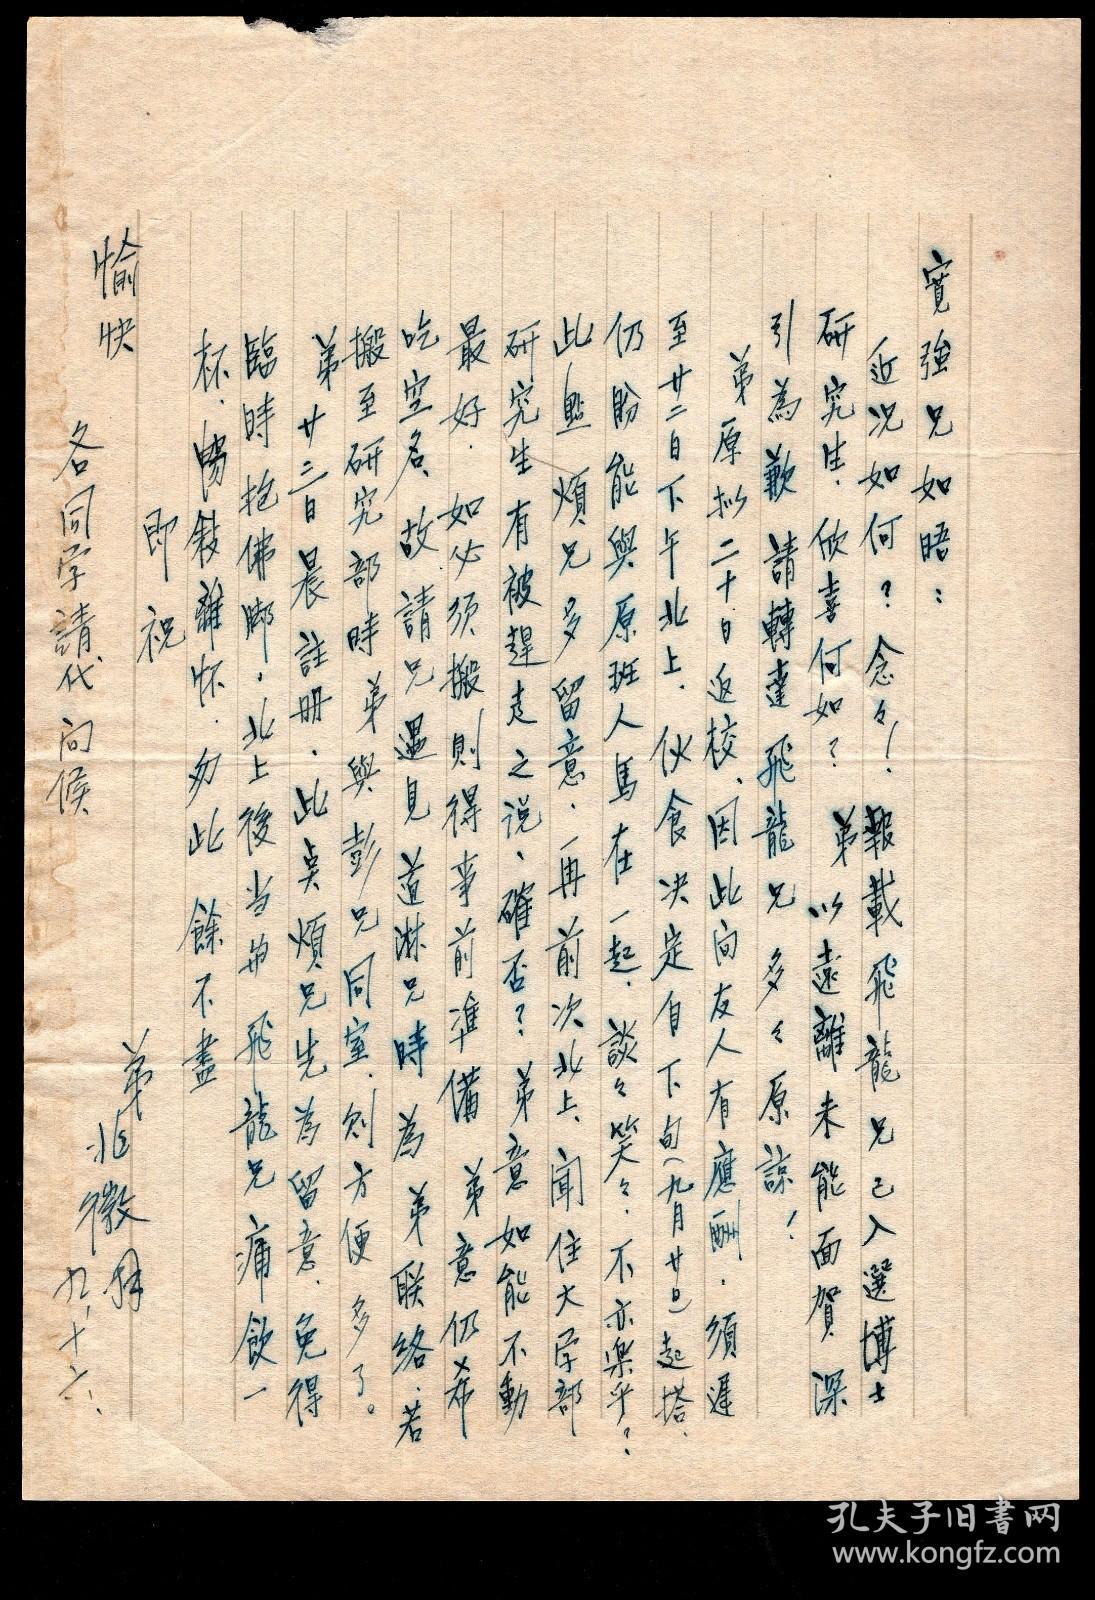 寬強兄如晤：
近況如何？念々！報載飛龍兄已入選博士
研究生、欣喜何如？弟以遠離未能面賀深
引為歉請轉達飛龍兄多々原諒！
弟原拟二十日返校、因此间友人有應酬．須遲
至廿二日下午北上．伙食決定自下旬（九月廿日）起搭、
仍盼能與原班人馬在一起．談々笑々．不亦樂乎？
此點煩兄多留意．再前次北上、聞住大学部
研究生有被趕走之说、確否？弟意如能不動
最好．如必须搬則得事前準備弟意仍希
吃空名、故請兄遇見道淋兄時為弟联络．若
搬至研究部時弟與彭兄同室．则方便多了。
弟廿三日晨註册．此奌煩兄先為留意．免得
臨時抱佛脚．北上後当与飛龍兄痛飲一
杯．暢敍離怀．匆此餘不盡
即祝
愉快
弟兆徽拜
九、十六、
各同学請代问候
孔夫子旧书网
www.kongfz.com